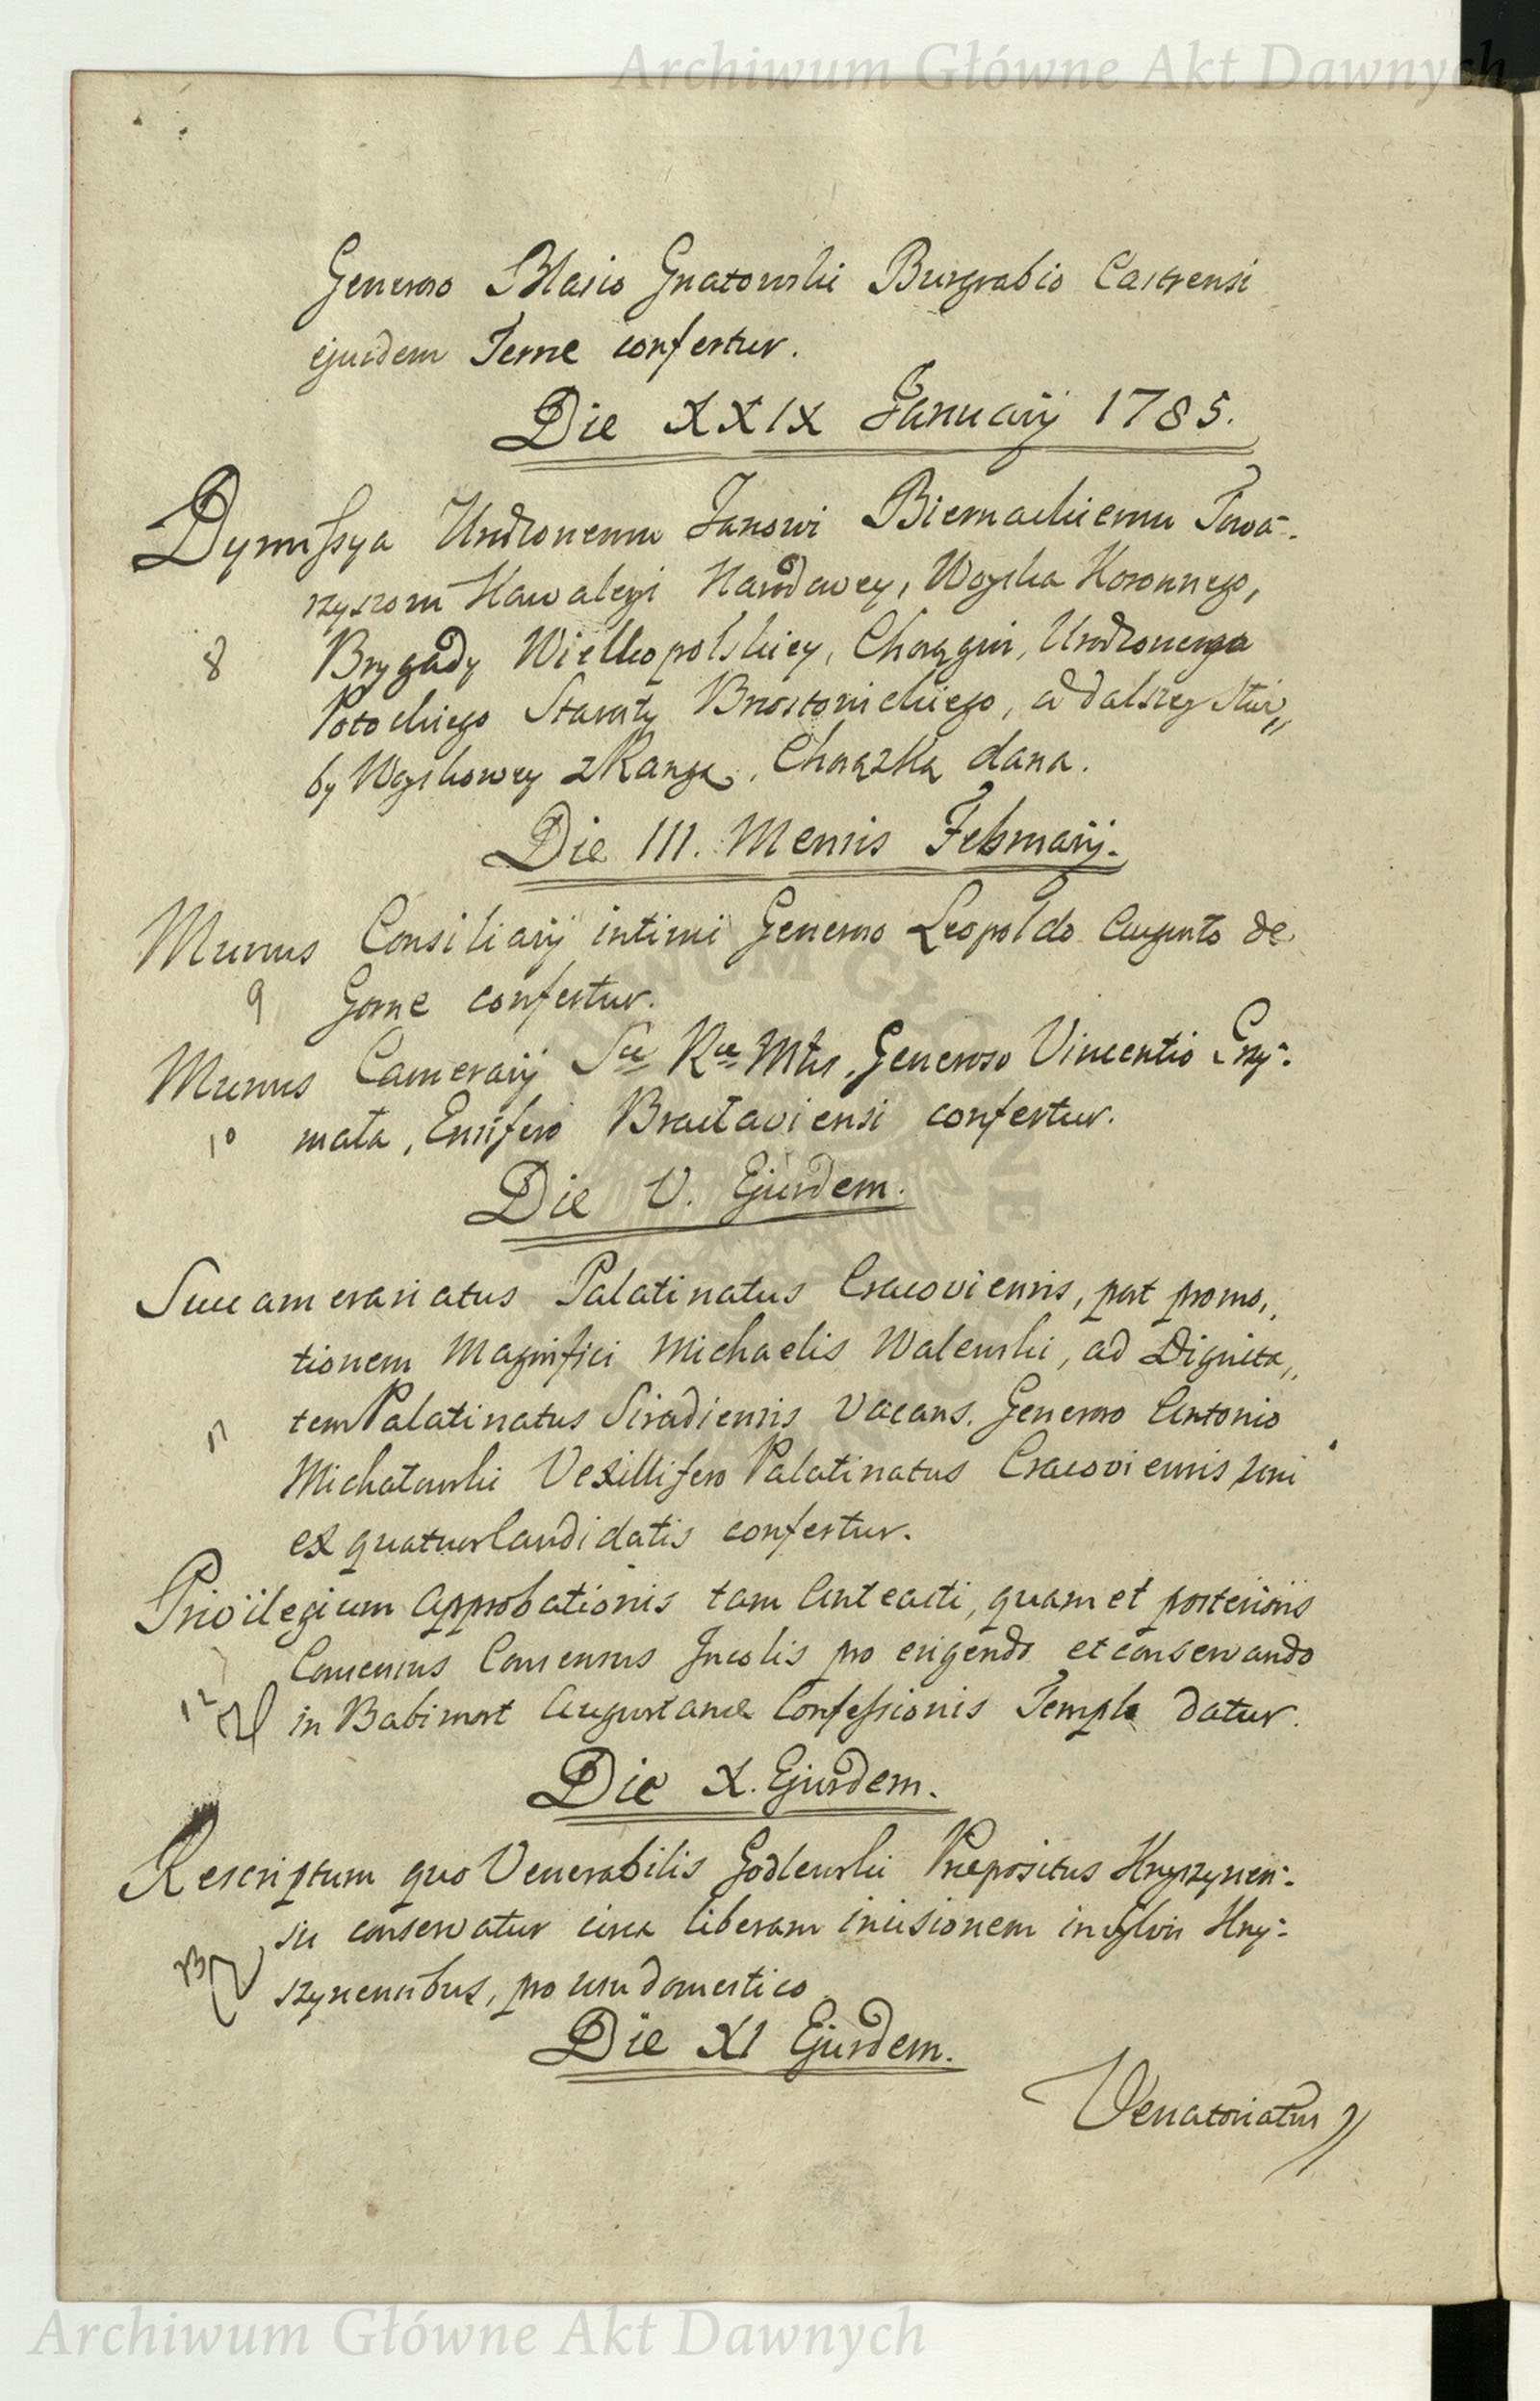 Archiwum Główne Akt Dawnych
Generoso Blasio Gnatowski Burgrabio Castrensi
ejusdem Terræ confertur.
Die XXIX Januarij 1785.
Dymissya Urodzonemu Janowi Biernackiemu Towa-
rzyszowi Kawaleryi Narodowey, Woyska Koronnego,
8 Brygady Wielkopolskiey, Chorągwi, Urodzonego
Potockiego Starosty Brzostowickiego, od dalszey Służ„
by Woyskowey z Rangą, Chorążka dana.
Die III. Mensis Februarij.
Munus Consiliarij intimi Generoso Leopoldo Augusto de
9 Gorne confertur.
Munus Camerarij Sæ Ræ Mtis, Generoso Vincentio Grzy-
10 mała, Ensifero Bracłaviensi confertur.
Die V. Ejusdem.
Succamerariatus Palatinatus Cracoviensis, post promo„
tionem Magnifici Michaelis Walewski, ad Dignita„
11 tem Palatinatus Siradiensis vacans. Generoso Antonio
Michałowski Vexillifero Palatinatus Cracoviensis uni
ex quatuor Candidatis confertur.
Privilegium Approbationis tam Anteacti, quam et posterioris
Consensus Incolis pro erigendo et conservando
12 in Babimost Augustanæ Confessionis Templo datur.
Die X. Ejusdem.
Rescriptum quo Venerabilis Godlewski Præpositus Knyszynen-
sis conservatur circa liberam incisionem in Sylvis Kny-
13 szynensibus, pro usu domestico
Die XI Ejusdem.
Venatoriatus
Archiwum Główne Akt Dawnych